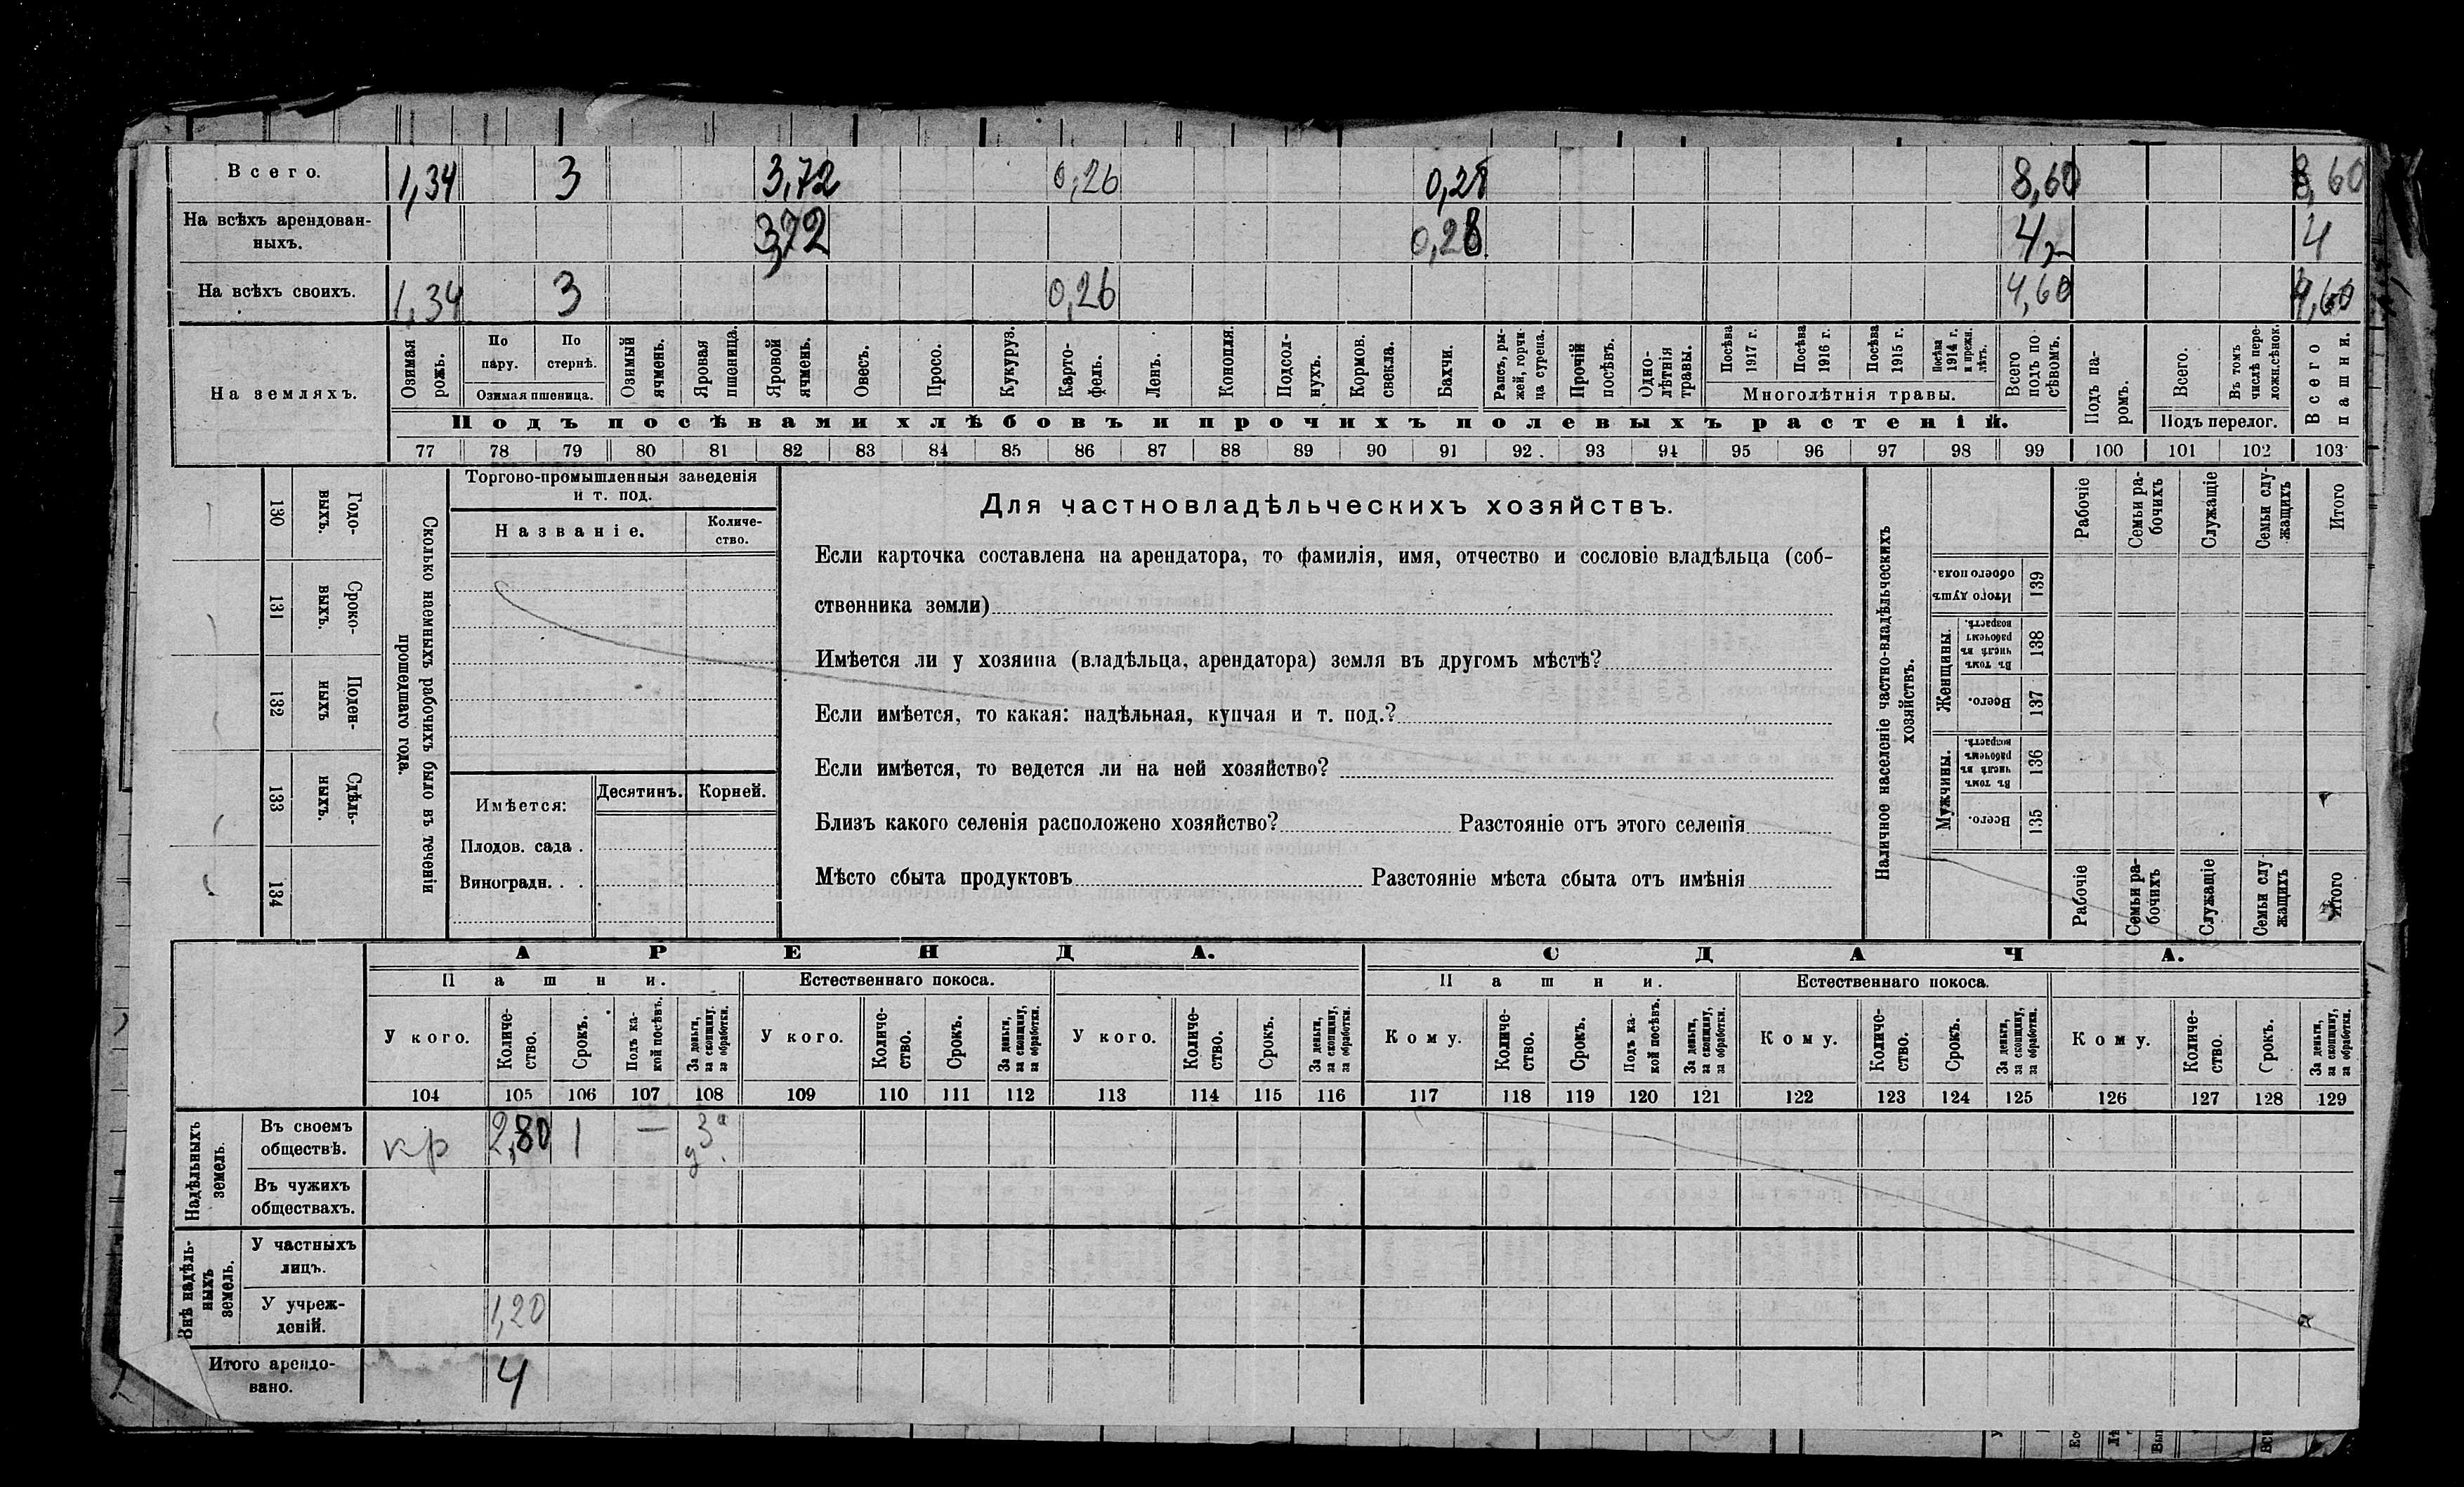 Всего. 1,34 3 3,72 0,26 0,28 8,60 8,60
На всѣхъ арендован-
ныхъ. 3,72 0,28 4 4
На всѣхъ своихъ. 1,34 3 0,26 4,60 4,60
На земляхъ.
Озимая рожь.
По пару.
По стернѣ.
Озимая пшеница.
Озимый ячмень.
Яровая пшеница.
Яровой ячмень.
Овесъ.
Просо.
Кукуруз.
Карто-
фель.
Ленъ.
Конопля.
Подсол-
нухъ.
Кормов.
свекла.
Бахчи.
Рапсъ, ры-
жей, горчи-
ца сурепа.
Прочій посѣвъ.
Одно-
лѣтнія травы.
Посѣва 1917 г.
Посѣва 1916 г.
Посѣва 1915 г.
Посѣва 1914 г. и прежн. лѣтъ.
Многолѣтнія травы.
Всего подъ по-
сѣвомъ.
Подъ па-
ромъ.
Всего.
Въ томъ числѣ пере-
ложн. сѣнок.
Подъ перелог.
Всего пашни.
Подъ посѣвами хлѣбовъ и прочихъ полевыхъ растеній.
77 78 79 80 81 82 83 84 85 86 87 88 89 90 91 92 93 94 95 96 97 98 99 100 101 102 103
Сколько наемныхъ рабочихъ было въ теченіи
прошедшаго года.
Годо-
выхъ. 130
Сроко-
выхъ. 131
Поден-
ныхъ 132
Сдѣль-
ныхъ. 133
134
Торгово-промышленныя заведенія
и т. под.
Названіе.
Количе-
ство.
Имѣется: Десятинъ. Корней.
Плодов. сада .
Виноградн. . .
Для частновладѣльческихъ хозяйствъ.
Если карточка составлена на арендатора, то фамилія, имя, отчество и сословіе владѣльца (соб-
ственника земли)
Имѣется ли у хозяина (владѣльца, арендатора) земля въ другомъ мѣстѣ?
Если имѣется, то какая: надѣльная, купчая и т. под.?
Если имѣется, то ведется ли на ней хозяйство?
Близъ какого селенія расположено хозяйство? Разстояніе отъ этого селенія
Мѣсто сбыта продуктовъ Разстояніе мѣста сбыта отъ имѣнія
Наличное населеніе частно-владѣльческихъ
хозяйствъ.
Рабочіе
Семьи ра-
бочихъ
Служащіе
Семьи слу-
жащихъ
Итого
Итого душъ обоего пола. 139
Женщины.
Въ томъ числѣ въ рабочемъ возрастѣ. 138
Всего. 137
Мужчины.
Въ томъ числѣ въ рабочемъ возрастѣ. 136
Всего. 135
Рабочіе
Семьи ра-
бочихъ
Служащіе
Семьи слу-
жащихъ
Итого
АРЕНДА. СДАЧА.
Пашни. Естественнаго покоса. Пашни. Естественнаго покоса.
У кого.
Количе-
ство.
Срокъ.
Подъ ка-
кой посѣвъ.
За деньги, за скопщину, за обработки.
У кого.
Количе-
ство.
Срокъ.
За деньги, за скопщину, за обработки.
У кого.
Количе-
ство.
Срокъ.
За деньги, за скопщину, за обработки.
Кому.
Количе-
ство.
Срокъ.
Подъ ка-
кой посѣвъ.
За деньги, за скопщину, за обработки.
Кому.
Количе-
ство.
Срокъ.
За деньги, за скопщину, за обработки.
Кому.
Количе-
ство.
Срокъ.
За деньги, за скопщину, за обработки.
104 105 106 107 108 109 110 111 112 113 114 115 116 117 118 119 120 121 122 123 124 125 126 127 128 129
Надѣльныхъ
земель.
Въ своемъ
обществѣ. кр 2,80 1 — за д.
Въ чужихъ
обществахъ.
Внѣ надѣль-
ныхъ
земель.
У частныхъ
лицъ.
У учреж-
деній. 1,20
Итого арендо-
вано. 4